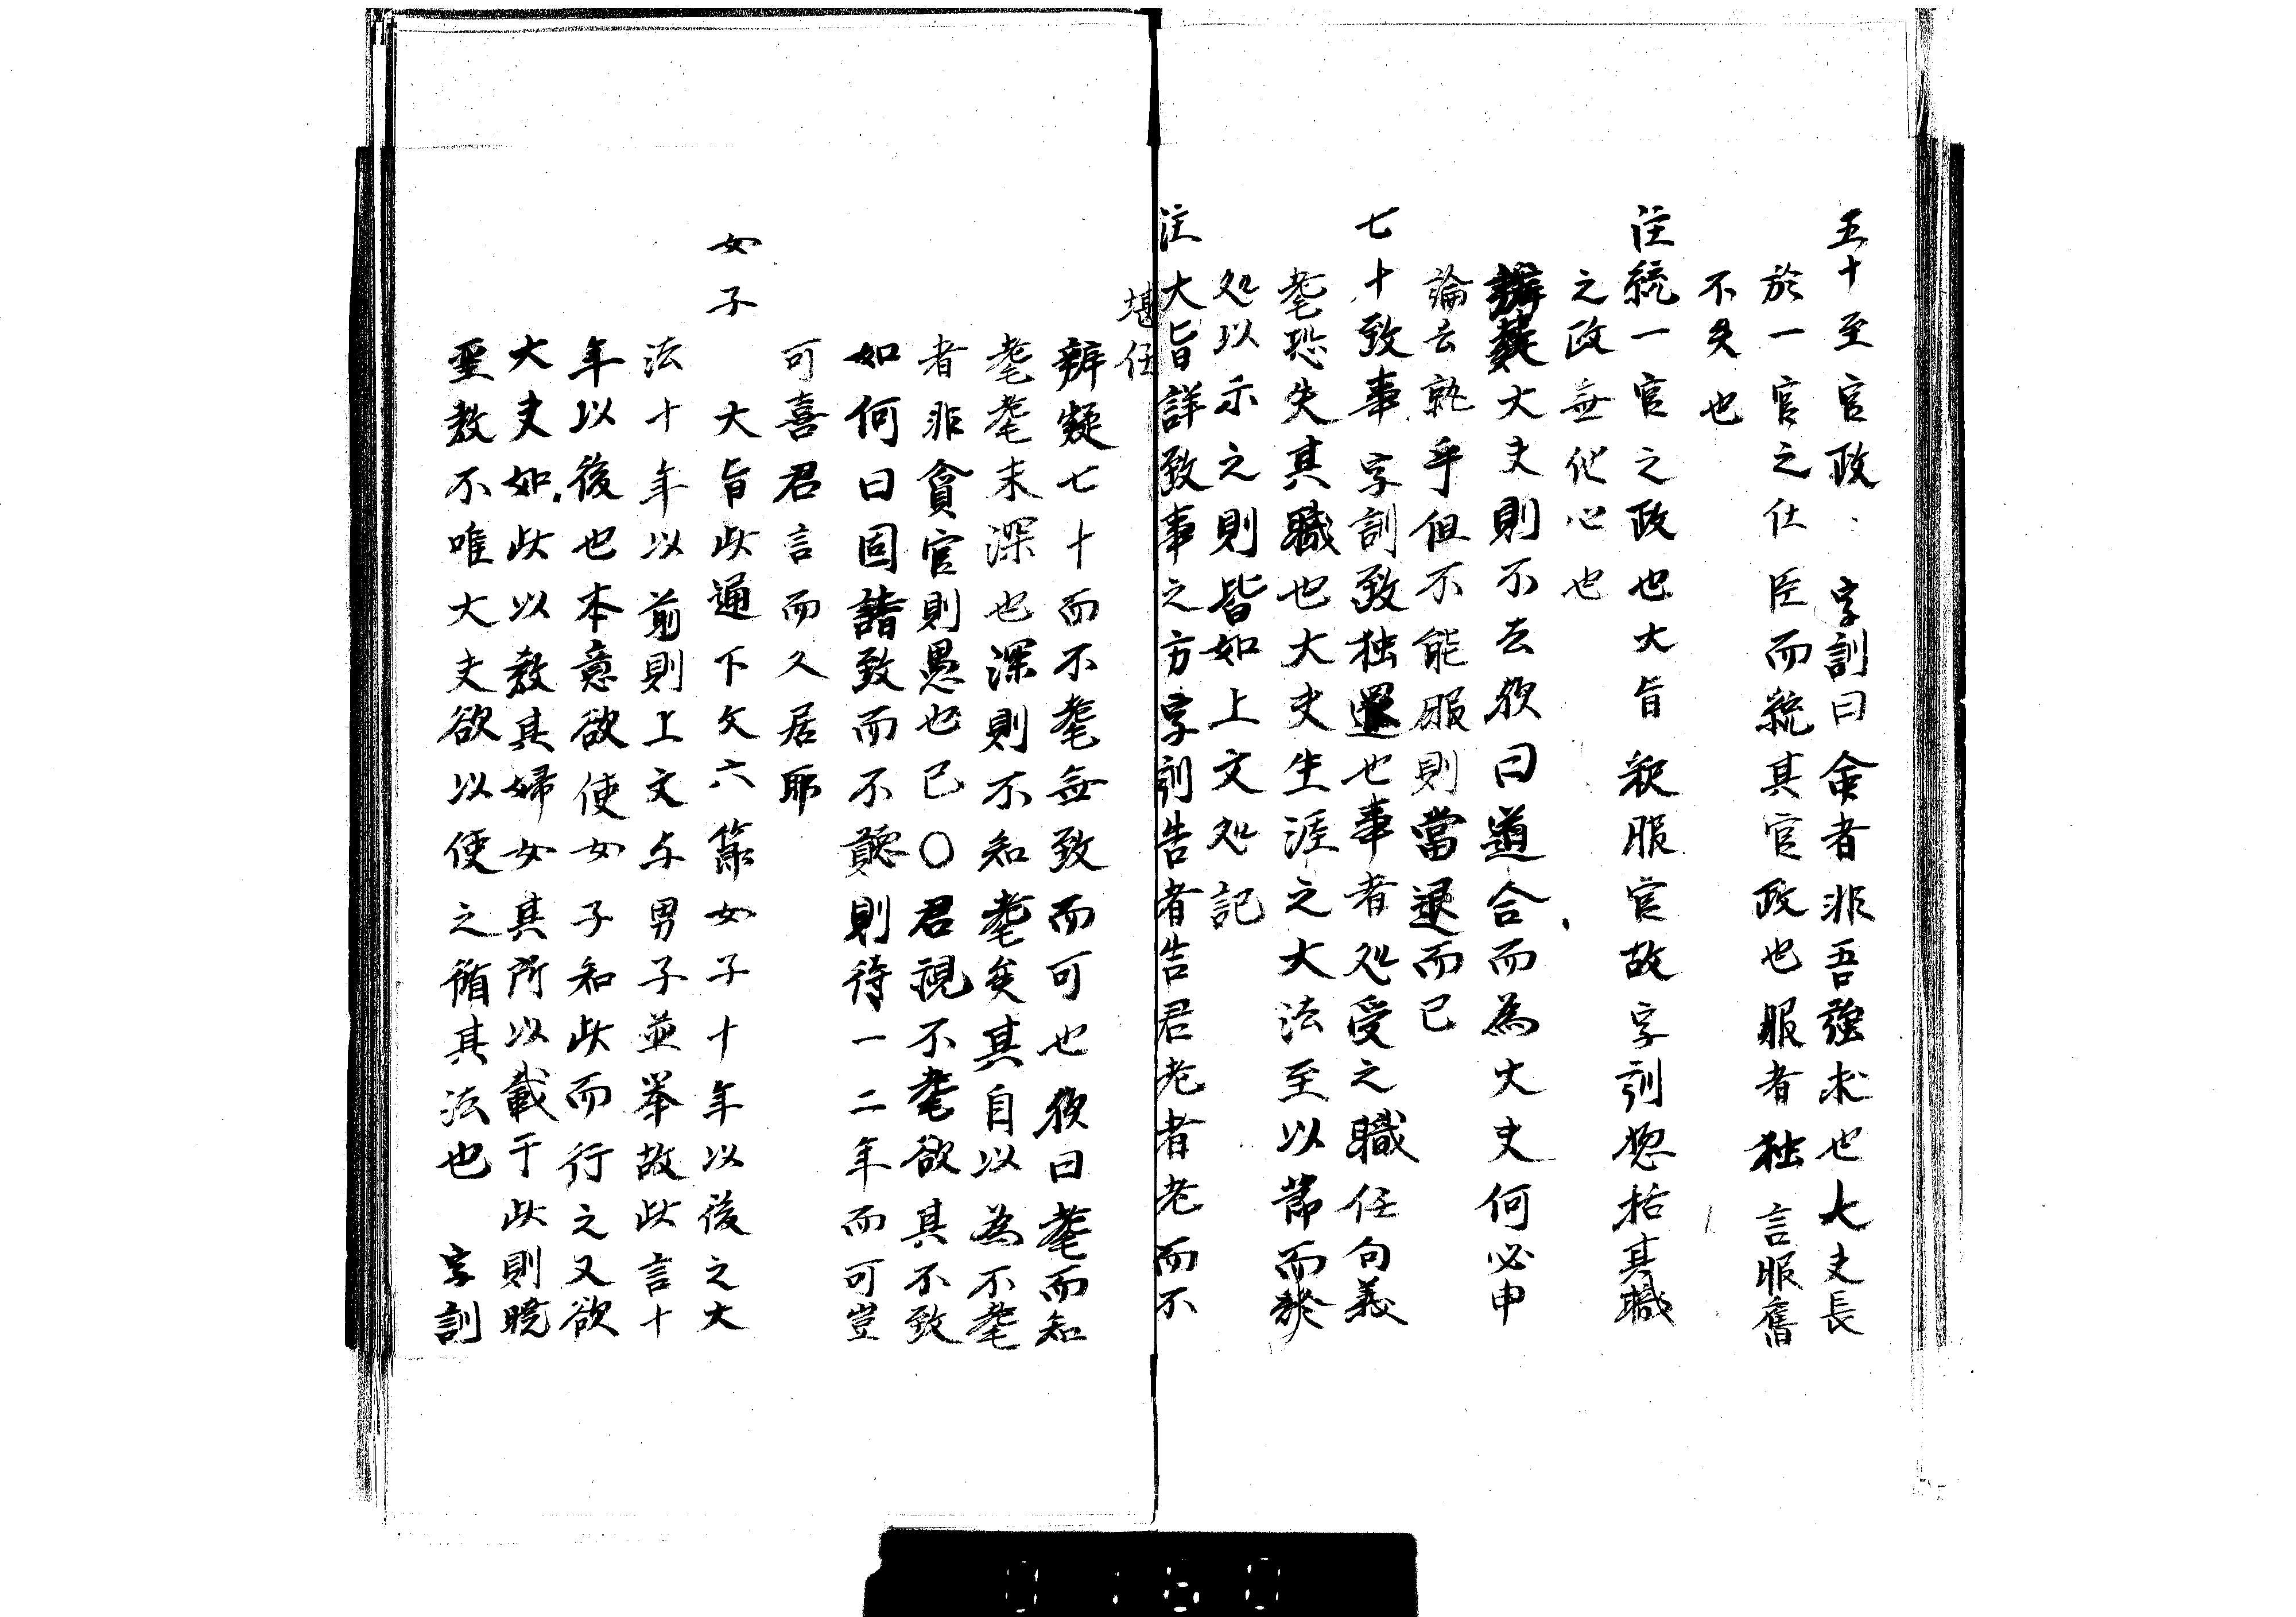 五十至官政　字訓曰命者非吾強求也大夫長
於一官之仕臣而統其官政也服者独言服舊
不失也
注統一官之政也大旨釈服官故字訓惣括其職
之政無他心也
辨疑大夫則不去欤曰道合而為大夫何必申
論去就乎但不能服則當退而已
七十致事　字訓致独還也事者処受之職任句義
耄恐失其職也大夫生涯之大法至以節而終
処以示之則皆如上文処記
注大旨詳致事之方字訓告者告君老者老而不
堪任
辨疑七十而不耄無致而可也欤曰耄而知
耄耄末深也深則不知耄矣其自以為不耄
者非貪官則愚也已〇君視不耄欲其不致
如何曰固請致而不聽則待一二年而可豈
可喜君言而久居耶
女子　大旨此通下文六節女子十年以後之大
法十年以前則上文与男子並挙故此言十
年以後也本意欲使女子知此而行之又欲
大夫如此以教其婦女其所以載于此則曉
聖教不唯大夫欲以使之循其法也　字訓